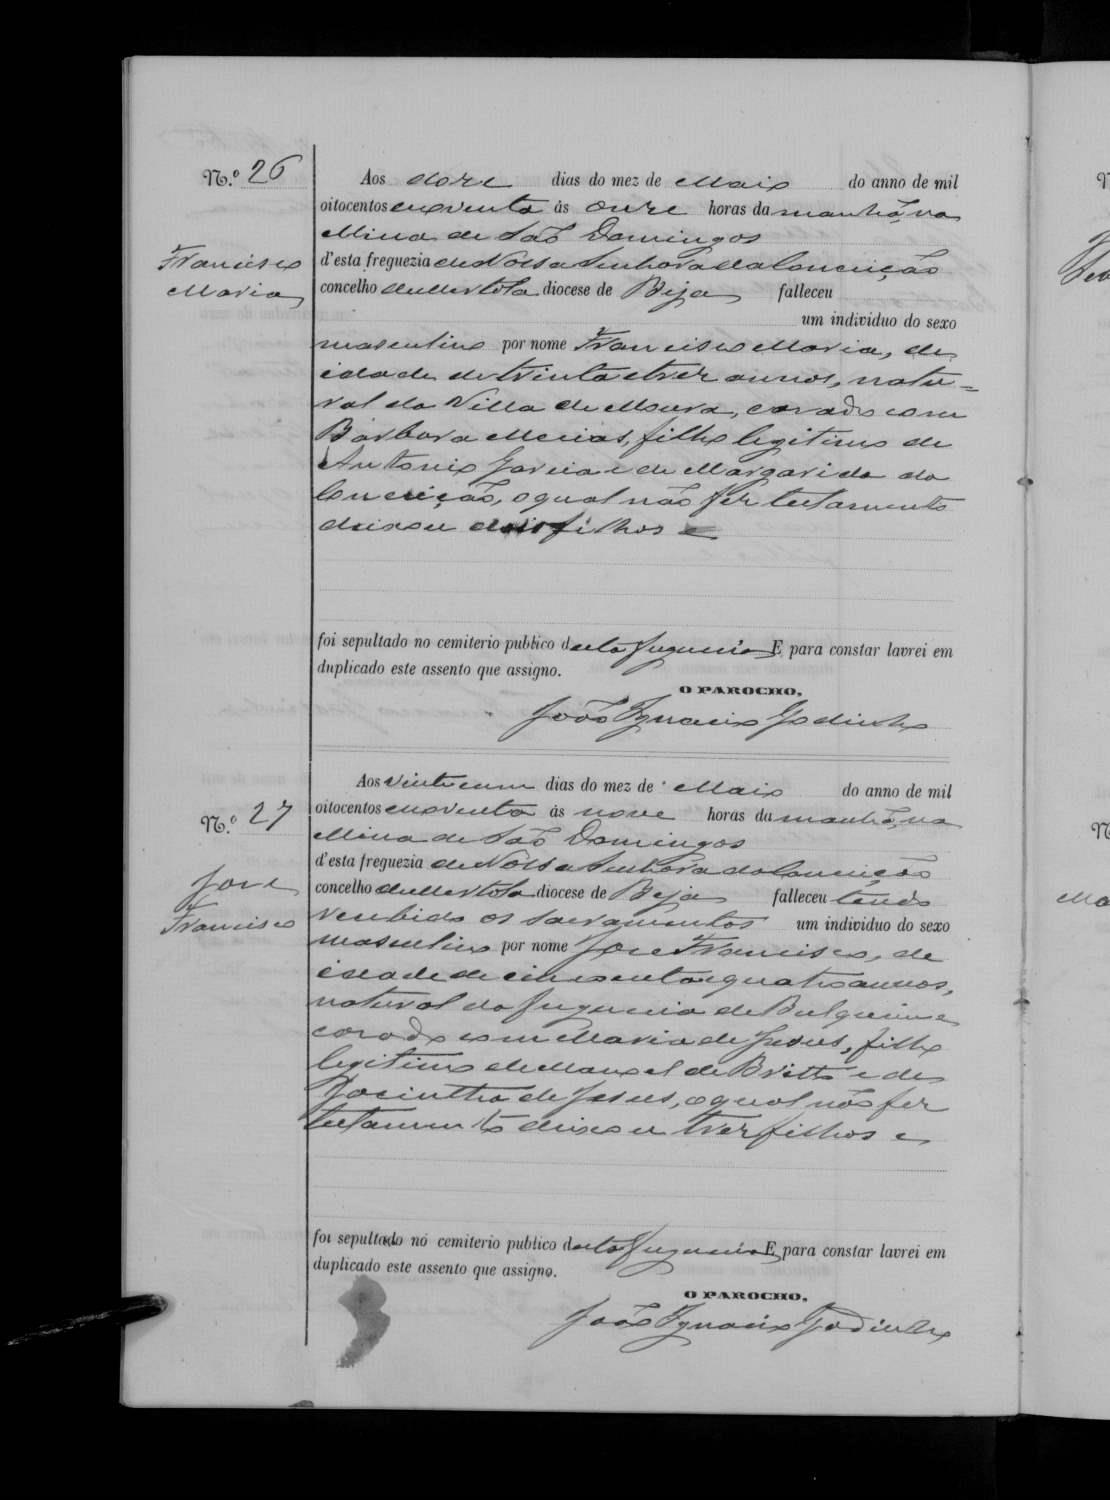 N.º 26
Francisco
Maria
Aos doze dias do mez de Maio do anno de mil
oitocentos e noventa ás onze horas da manhã, na
Mina de São Domingos
d'esta freguezia de Nossa Senhora da Conceição
concelho de Mertola diocese de Beja falleceu
um individuo do sexo
masculino por nome Francisco Maria, de
idade de trinta e trez annos, natu-
ral da Villa de Moura, casado com
Barbara Mecias, filho legitimo de
Antonio Garcia e de Margarida da
Conceição, o qual não fez testamento
deixou dois filhos e
foi sepultado no cemiterio publico desta freguezia E para constar lavrei em
duplicado este assento que assigno.
O PAROCHO,
João Ignacio Godinho
N.º 27
Jose
Francisco
Aos vinte e um dias do mez de Maio do anno de mil
oitocentos e noventa ás nove horas da manhã, na
Mina de São Domingos
d'esta freguezia de Nossa Senhora da Conceição
concelho de Mertola diocese de Beja falleceu tendo
recebido os sacramentos um individuo do sexo
masculino por nome Jose Francisco, de
idade de cincoenta e quatro annos,
natural da freguezia de
casado com Maria de Jesus, filho
legitimo de Manoel de Britto e de
Jacintha de Jesus, o qual não fez
testamento deixou trez filhos e
foi sepultado no cemiterio publico desta freguezia E para constar lavrei em
duplicado este assento que assigno.
O PAROCHO,
João Ignacio Godinho